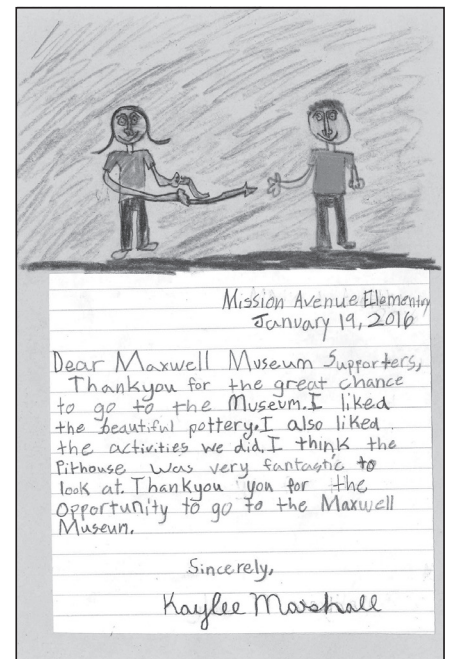 Mission Avenue Elementry
January 19, 2016
Dear Maxwell Museum Supporters,
Thankyou for the great chance
to go to the Museum. I liked
the beautiful pottery. I also liked
the activities we did. I think the
Pithouse was very fantastic to
look at. Thankyou you for the
Opportunity to go to the Maxwell
Museum.
Sincerely,
Kaylee Marshall